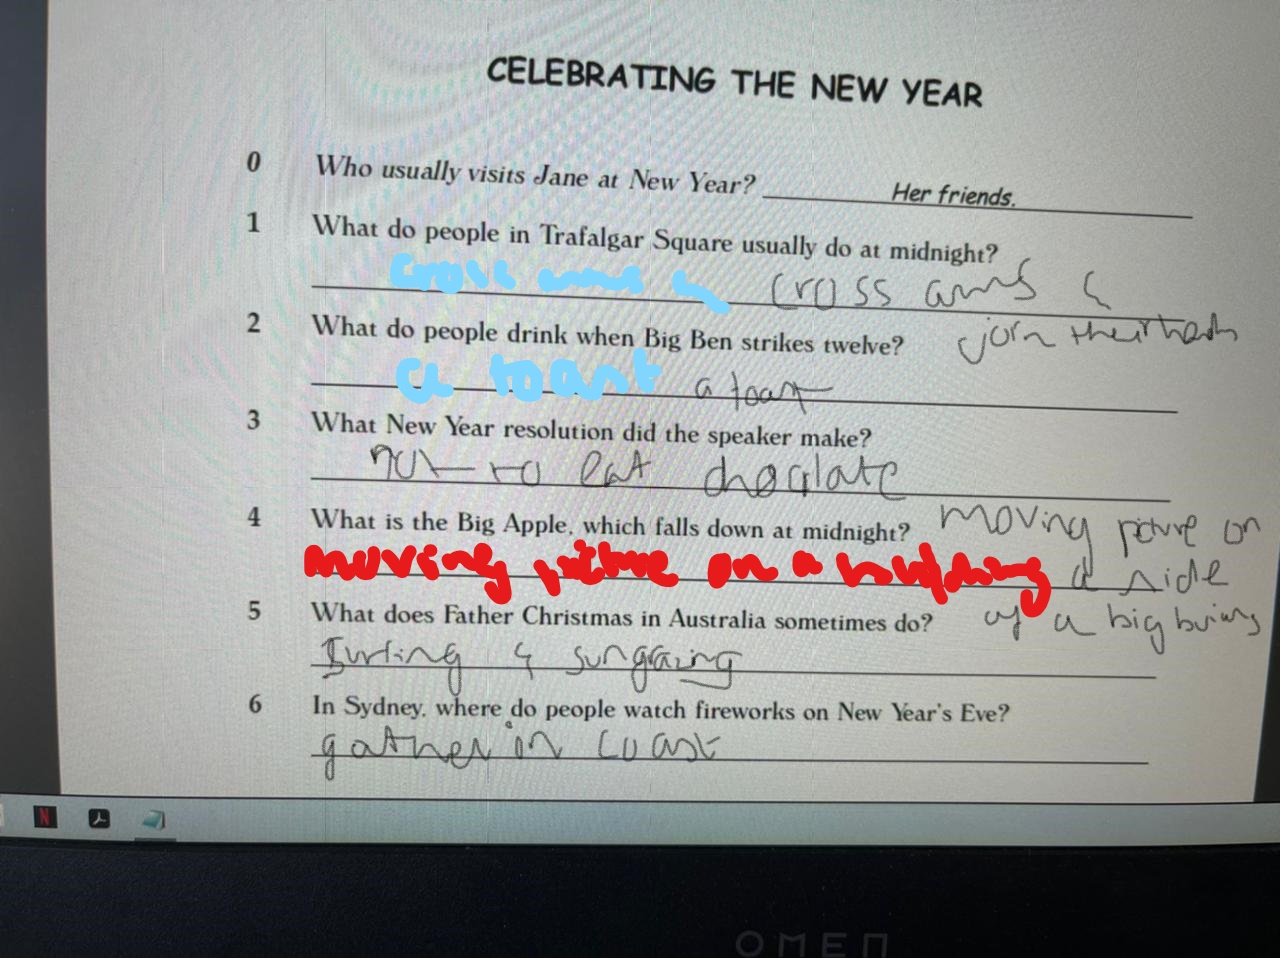 CELEBRATING THE NEW YEAR
0 Who usually visits Jane at New Year? Her friends.
1 What do people in Trafalgar Square usually do at midnight?
cross arms & cross arms &
join their hands
2 What do people drink when Big Ben strikes twelve?
a toast a toast
3 What New Year resolution did the speaker make?
not to eat
4 What is the Big Apple, which falls down at midnight? moving picture on
moving picture on a a side
of a big
5 What does Father Christmas in Australia sometimes do?
surfing &
6 In Sydney, where do people watch fireworks on New Year's Eve?
gather in coast
N
OMEN